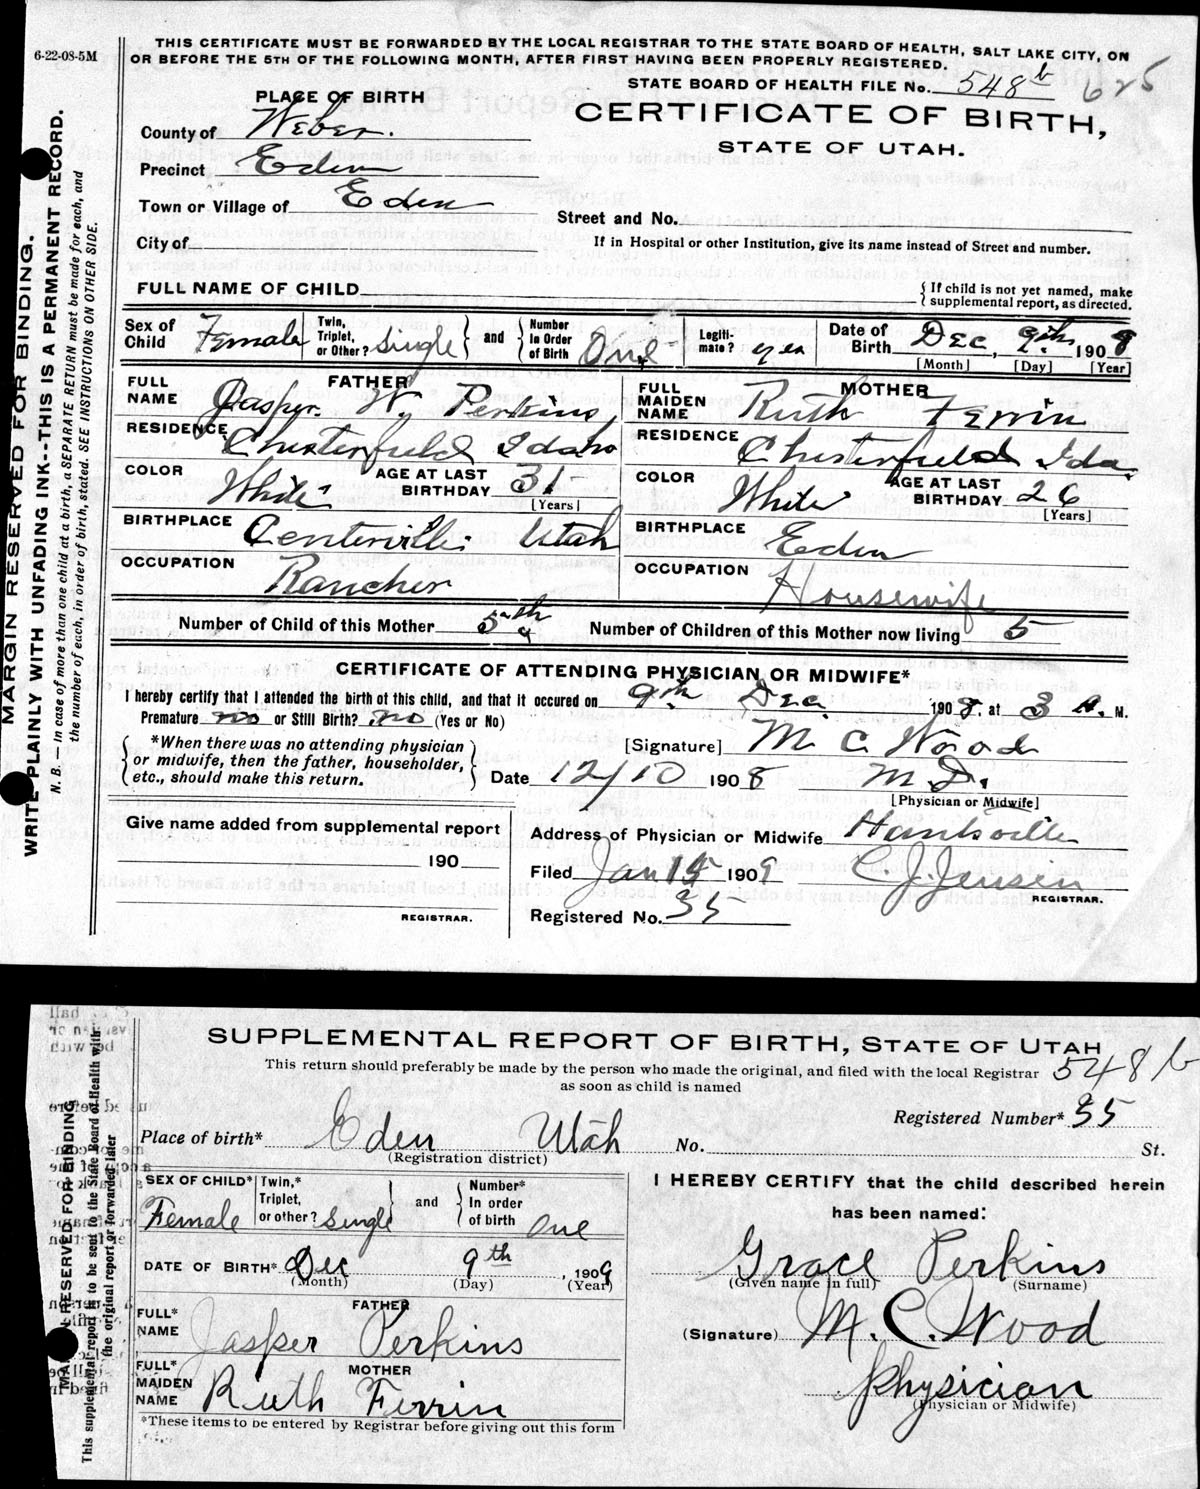 6-22-08-5M
THIS CERTIFICATE MUST BE FORWARDED BY THE LOCAL REGISTRAR TO THE STATE BOARD OF HEALTH, SALT LAKE CITY, ON
OR BEFORE THE 5TH OF THE FOLLOWING MONTH, AFTER FIRST HAVING BEEN PROPERLY REGISTERED.
STATE BOARD OF HEALTH FILE No. 548 b 625
PLACE OF BIRTH
CERTIFICATE OF BIRTH,
STATE OF UTAH.
County of Weber.
Precinct Eden
Town or Village of Eden
Street and No.
City of
If in Hospital or other Institution, give its name instead of Street and number.
FULL NAME OF CHILD
If child is not yet named, make
supplemental report, as directed.
Sex of Child Female Twin, Triplet, or Other? Single and Number In Order of Birth One Legiti-mate? yes Date of Birth Dec, 9th 1908
[Month] [Day] [Year]
FATHER
FULL NAME Jasper W. Perkins
RESIDENCE Chesterfield Idaho
COLOR White AGE AT LAST BIRTHDAY 31
[Years]
BIRTHPLACE Centerville Utah
OCCUPATION Rancher
MOTHER
FULL MAIDEN NAME Ruth Ferrin
RESIDENCE Chesterfield Ida.
COLOR White AGE AT LAST BIRTHDAY 26
[Years]
BIRTHPLACE Eden
OCCUPATION Housewife
Number of Child of this Mother 5th Number of Children of this Mother now living 5
CERTIFICATE OF ATTENDING PHYSICIAN OR MIDWIFE*
I hereby certify that I attended the birth of this child, and that it occured on 9th Dec. 1908. at 3 A. M.
Premature no or Still Birth? no (Yes or No)
*When there was no attending physician
or midwife, then the father, householder,
etc., should make this return.
[Signature] M C Wood
Date 12/10 1908 M.D.
[Physician or Midwife]
Give name added from supplemental report
190
REGISTRAR.
Address of Physician or Midwife Huntsville
Filed Jan 15 1909 C. J. Jensen
REGISTRAR.
Registered No. 35
MARGIN RESERVED FOR BINDING.
WRITE PLAINLY WITH UNFADING INK--THIS IS A PERMANENT RECORD.
N. B. — In case of more than one child at a birth, a SEPARATE RETURN must be made for each, and
the number of each, in order of birth, stated. SEE INSTRUCTIONS ON OTHER SIDE.
SUPPLEMENTAL REPORT OF BIRTH, STATE OF UTAH
This return should preferably be made by the person who made the original, and filed with the local Registrar 548 b
as soon as child is named
Registered Number* 35
Place of birth* Eden Utah No. St.
(Registration district)
SEX OF CHILD* Female Twin,* Triplet, or other? Single and Number* In order of birth One
DATE OF BIRTH* Dec 9th, 1909
(Month) (Day) (Year)
FATHER
FULL* NAME Jasper Perkins
MOTHER
FULL* MAIDEN NAME Ruth Ferrin
*These items to be entered by Registrar before giving out this form
I HEREBY CERTIFY that the child described herein
has been named:
Grace Perkins
(Given name in full) (Surname)
(Signature) M. C. Wood
Physician
(Physician or Midwife)
RESERVED FOR BINDING
This supplemental report is to be sent to the State Board of Health with
the original report or forwarded later